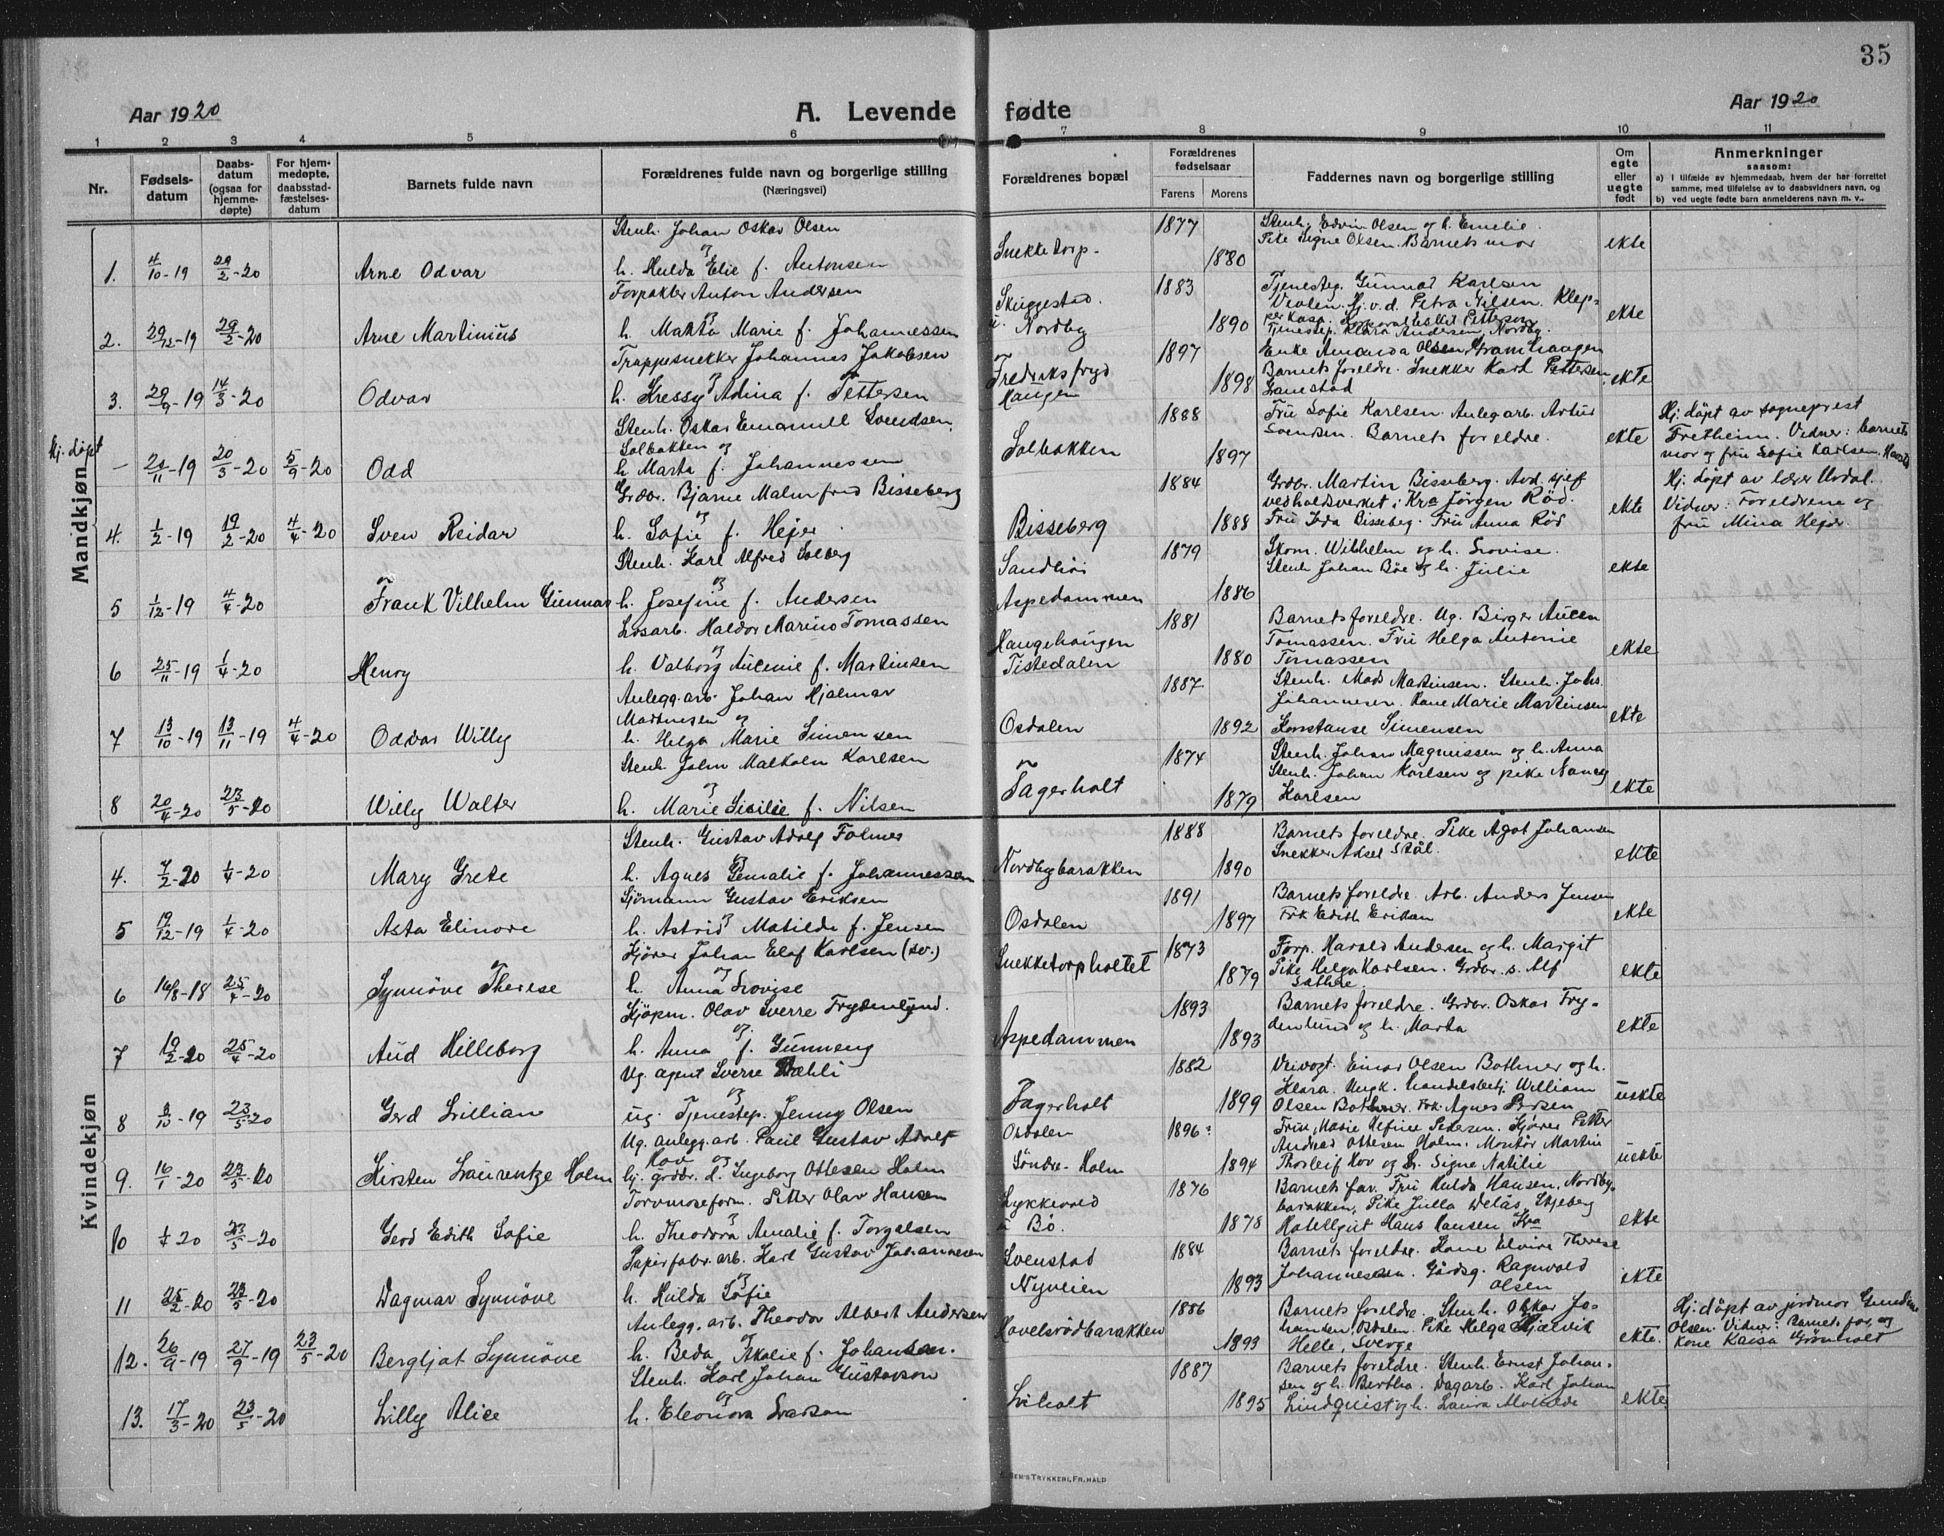 35
Aar 1920
A. Levende fødte
Aar 1920
1 2 3 4 5 6 7 8 9 10 11
Nr.
Fødsels-
datum
Daabs-
datum
(ogsaa for
hjemme-
døpte)
For hjem-
medøpte,
daabsstad-
fæstelses-
datum
Barnets fulde navn
Forældrenes fulde navn og borgerlige stilling
(Næringsvei)
Forældrenes bopæl
Forældrenes
fødselsaar
Farens
Morens
Faddernes navn og borgerlige stilling
Om
egte
eller
uegte
født
Anmerkninger
saasom:
a) I tilfælde av hjemmedaab, hvem der har forrettet
samme, med tilføielse av to daabsvidners navn, og
b) ved uegte fødte barn anmelderens navn m. v.
Mandkjøn
1. 4/10-19 29/2-20 Arne Odvar
Stenh. Johan Oskar Olsen
og
h. Hulda Elie f. Antonsen
Snekketorp
1877 1880
Stenh. Edvin Olsen og h. Emelie.
Pike Signe Olsen. Barnets mor
ekte
2. 29/12-19 29/2-20 Arne Martinius
Forpakter Anton Andersen
og
h. Marta Marie f. Johannessen
Skuggestad
u. Nordby
1883 1890
Tjenesteg. Gunnar Karlsen
Veolen. Hj.v.d. Petra Nilsen. Klep-
per Kasa. Korporal Pettersen
Tjenestep. Klara Andersen, Nordby.
ekte
3. 29/9-19 14/3-20 Odvar
Trappesnekker Johannes Jakobsen
og
h. Kressy Alina f. Pettersen
Fredriksfryd
Haugen
1897 1898
Enke Amanda Olsen, Framhaugen
Barnets foreldre. Snekker Karl Pettersen,
Lanestad
ekte
Hj. døpt
— 20/11-19 20/3-20 5/9-20 Odd
Stenh. Oskar Emanuell Svendsen,
Solbakken og
h. Marta f. Johannessen
Solbakken
1888 1897
Fru Sofie Karlsen. Anlegarb. Artur
Svendsen. Barnets foreldre.
ekte
Hj. døpt av sogneprest
Fretheim. Vidner: barnets
mor og fru Sofie Karlsen.
4. 1/2-19 19/2-20 4/4-20 Sven Reidar
Grdbr. Bjarne Malmfred Bisseberg
og
h. Sofie f. Hejer.
Bisseberg
1884 1888
Grdbr. Martin Bisseberg. Avd. sjef
vedholdsverket i Kra Jörgen Röd.
Fru Inda Bisseberg. Fru Anna Röd
ekte
Hj. døpt av lærer Urdal.
Vidner: Foreldrene og
fru Mina Hejer.
5 1/12-19 4/4-20 Frank Vilhelm Gunnar
Stenh. Karl Alfred Solberg
og
h. Josefine f. Andersen
Sandhöi
Aspedammen
1879 1886
Skom. Wilhelm og h. Lovise.
Stenh. Johan Böe og h. Julie
ekte
6 25/11-19 1/4-20 Henry
Losarb. Haldor Marino Tomassen
og
h. Valborg Aucenie f. Martinsen
Haugehaugen
Tistedalen
1881 1880
Barnets foreldre. Ug. Birger Aucen
Tomassen. Fru Helga Antonie
Tomassen
ekte
7 13/10-19 13/11-19 4/4-20 Odvar Willy
Anlegg.arb. Johan Hjalmar
Martinsen og
h. Helga Marie Simensen
Osdalen
1887 1892
Stenh. Mads Martinsen. Stenh. Johs.
Johannesen. Kone Marie Martinsen
Konstanse Simensen
ekte
8 20/4-20 23/5-20 Willy Walter
Stenh. John Malkoln Karlsen
og
h. Marie Sisilie f. Nilsen
Fagerholt
1874 1879
Stenh. Johan Magnussen og h. Anna
Stenh. Johan Karlsen og pike Nancy
Karlsen
ekte
Kvindekjøn
4. 7/2-20 1/4-20 Mary Grete
Stenh. Gustav Adolf Folmer
og
h. Agnes Gemalie f. Johannessen
Nordbybarakken
1888 1890
Barnets foreldre. Pike Agot Johansen
Snekker Aksel Stål.
ekte
5 19/12-19 1/4-20 Asta Elinore
Sjömann Gustav Eriksen
og
h. Astrid Matilde f. Jensen
Osdalen
1891 1897
Barnets foreldre. Arb. Anders Jensen
Frk Edith Eriksen
ekte
6 14/8-18 25/4-20 Synnöve Therese
Kjörer Johan Elof Karlsen (sv.)
og
h. Anna Lovise
Snekketorpholtet
1873 1879
Forp. Harald Andersen og h. Margit
Pike Helga Karlsen. Grdbr. s. Alf
Sæthre.
ekte
7 19/2-20 25/4-20 Aud Hilleborg
Kjöpm. Olav Sverre Frydenlund.
og
h. Anna f. Gunneng
Aspedammen
1893 1893
Barnets foreldre. Grdbr. Oskar Fry-
denlund og h. Marta
ekte
8 23/5-20 Gerd Lillian
Ug. agent Sverre Dæhli
og
ug. Tjenestep. Jenny Olsen
Fagerholt
Osdalen
1882 1899
Veivogt. Einar Olsen Bothner og h.
Klara. Ungk. handelsbetj. William
Olsen Bothner. Frk. Agnes Larsen
uekte
9. 16/1-20 23/5-20 Kirsten Laurentze Holm
Ug. anlegg.arb. Paul Gustav Adolf
Hov og
hj. grdbr. d. Ingeborg Ottesen Holm
Söndre-Holm
1896 1894
Fru Marie Alfine Pedersen. Kjörer Petter
Andreas Ottesen Holm. Montör Martin
Thorleif Hov og h. Signe Natilie
uekte
10 1/4 20 23/5-20 Gerd Edith Sofie
Torvmoseform. Petter Olav Hansen
og
h. Theodora Amalie f. Torgalsen
Lykkevold
u Bö.
1876 1878
Barnets far. Fru Hulda Hansen, Nordby-
barakken, Pike Julla Delås, Skjeberg
Hotellgut Hans Hansen Kra
ekte
11 25/2-20 23/5-20 Dagmar Synnöve
Papirfabr.arb. Karl Gustav Johannesen
og
h. Hulda Sofie
Svenstad
Nyveien
1884 1893
Barnets foreldre. Kone Elvire Therese
Johannessen. Gårdsg. Ragnvald
Olsen
ekte
12. 26/9-19 27/9-19 23/5-20 Bergljot Synnöve
Anlegg.arb. Theodor Albert Andersen
og
h. Beda Natalie f. Johansson.
Havelsrödbarakken
1886 1893
Barnets foreldre. Stenh. Oskar Jo-
hansen, Osdalen. Pike Helga Hjælvik
Helle, Sverge
ekte.
Hj. døpt av jordmor Gundine
Olsen. Vidner: Barnets far, og
kone Kaisa Grönholt
13. 17/3-20 23/5-20 Lilly Alice
Stenh. Karl Johan Gustavson
og
h. Eleonora Larson
Liholt
1887 1895
Barnets foreldre. Stenh. Ernst Johan-
sen og h. Bertha. Dagarb. Karl Johan
Lindquist og h. Laura Molilde
ekte
TRYKKERI, FR.HALD